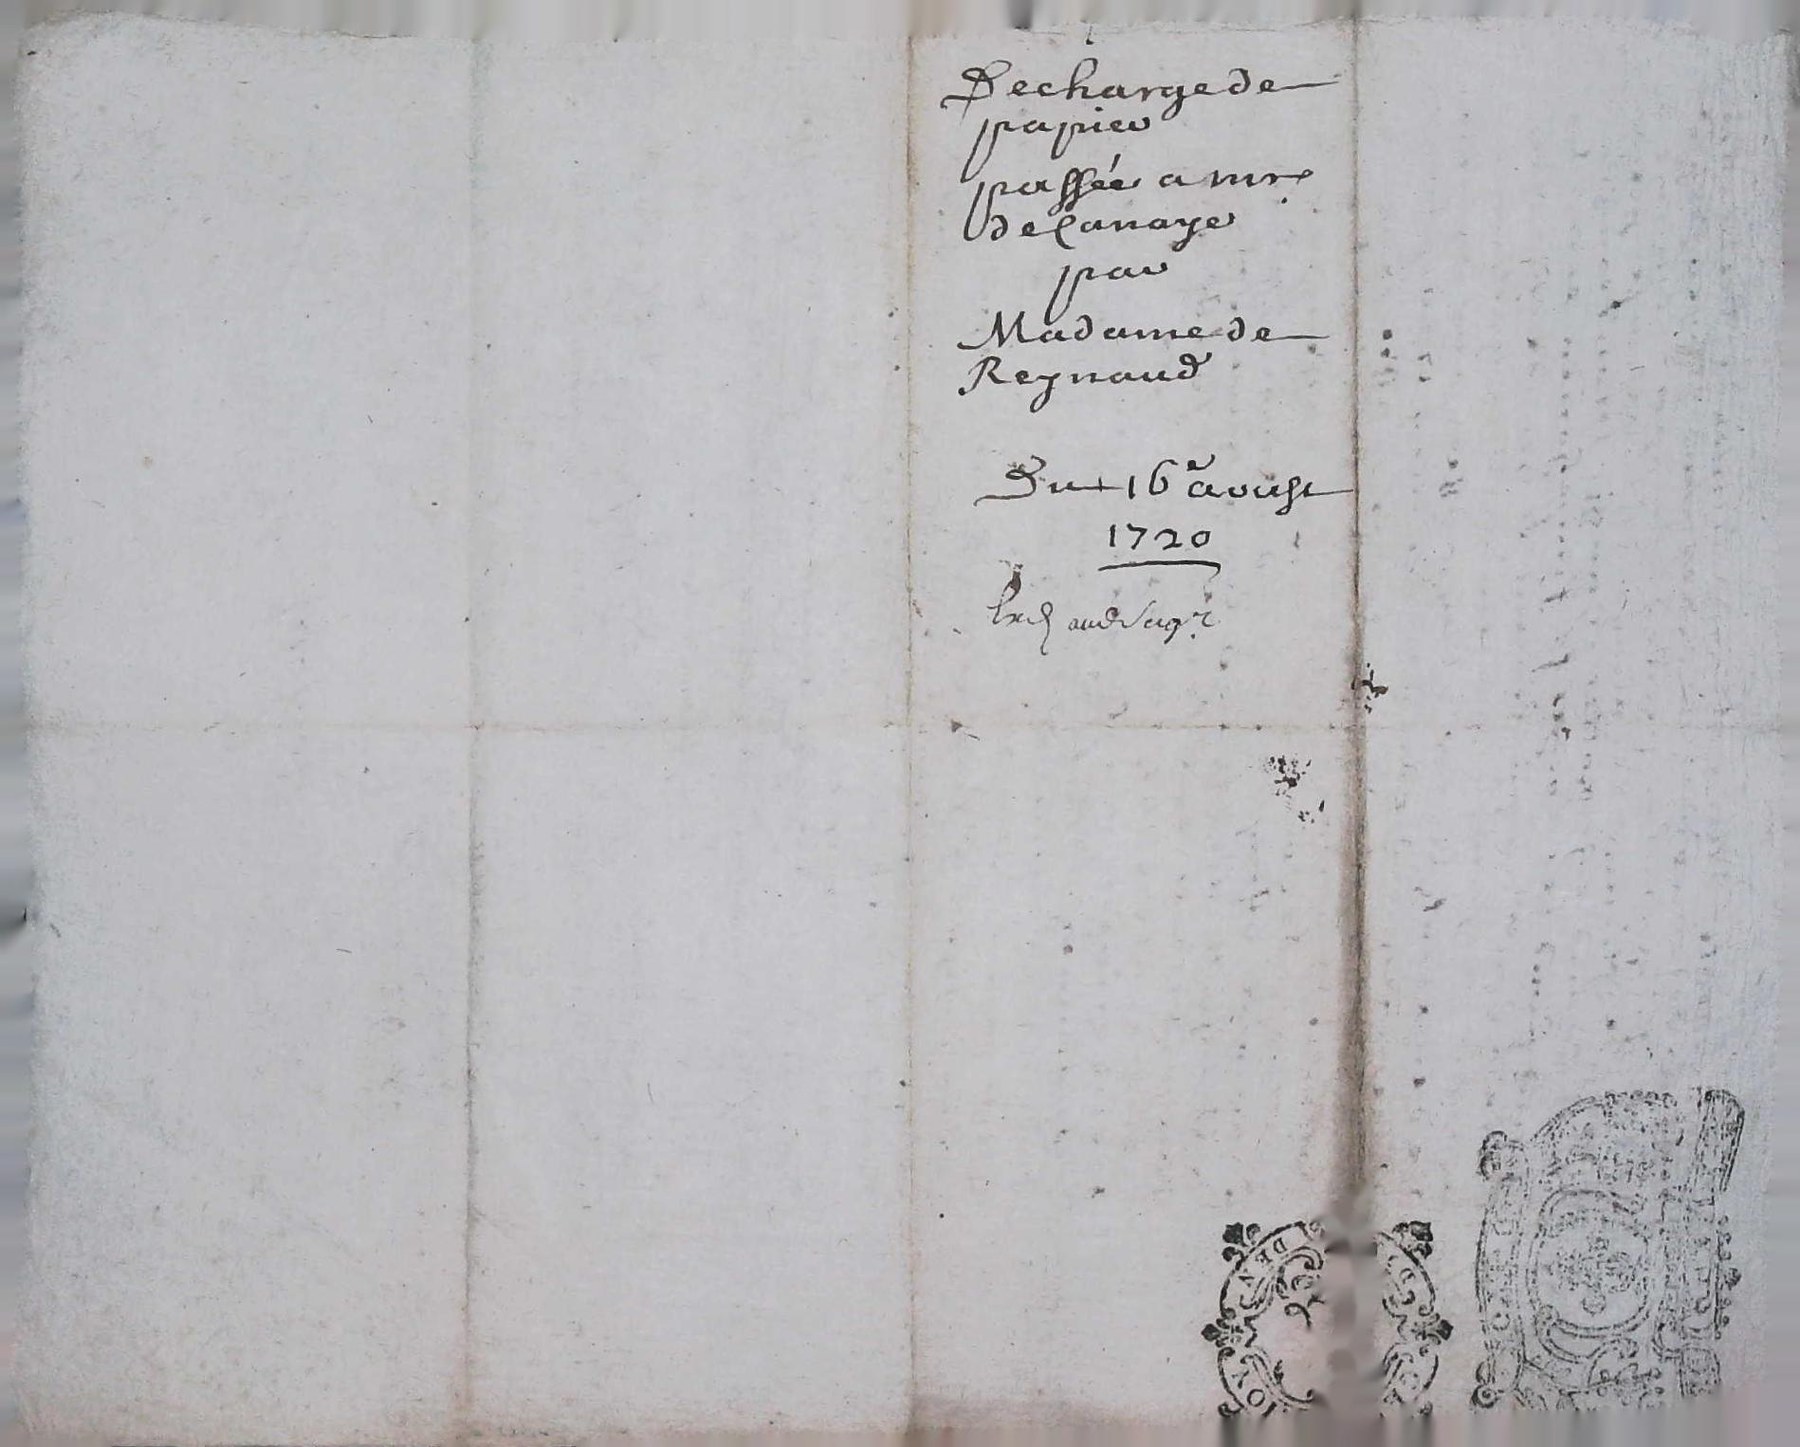 Decharge de
papier
passée a mr
de Lanaye
par
Madame de
Reynaud
Du 16e aoust
1720